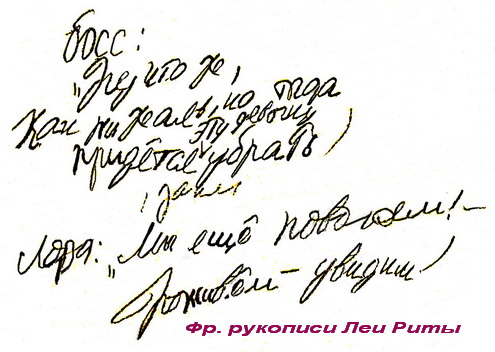 босс:
"Ну что ж,
как ни жаль, но тогда
эту девочку
придётся убрать,
Лора: "Мы ещё повоюем! –
Поживём – увидим!
Фр. рукописи Леи Риты